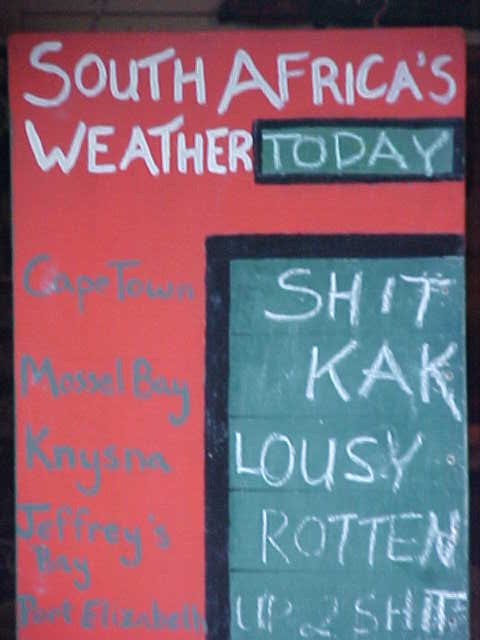 SOUTH AFRICA'S
WEATHER TODAY
Cape Town SHIT
Mossel Bay KAK
Knysna LOUSY
Jeffrey's ROTTEN
Bay
Port Elizabeth UP 2 SHIT